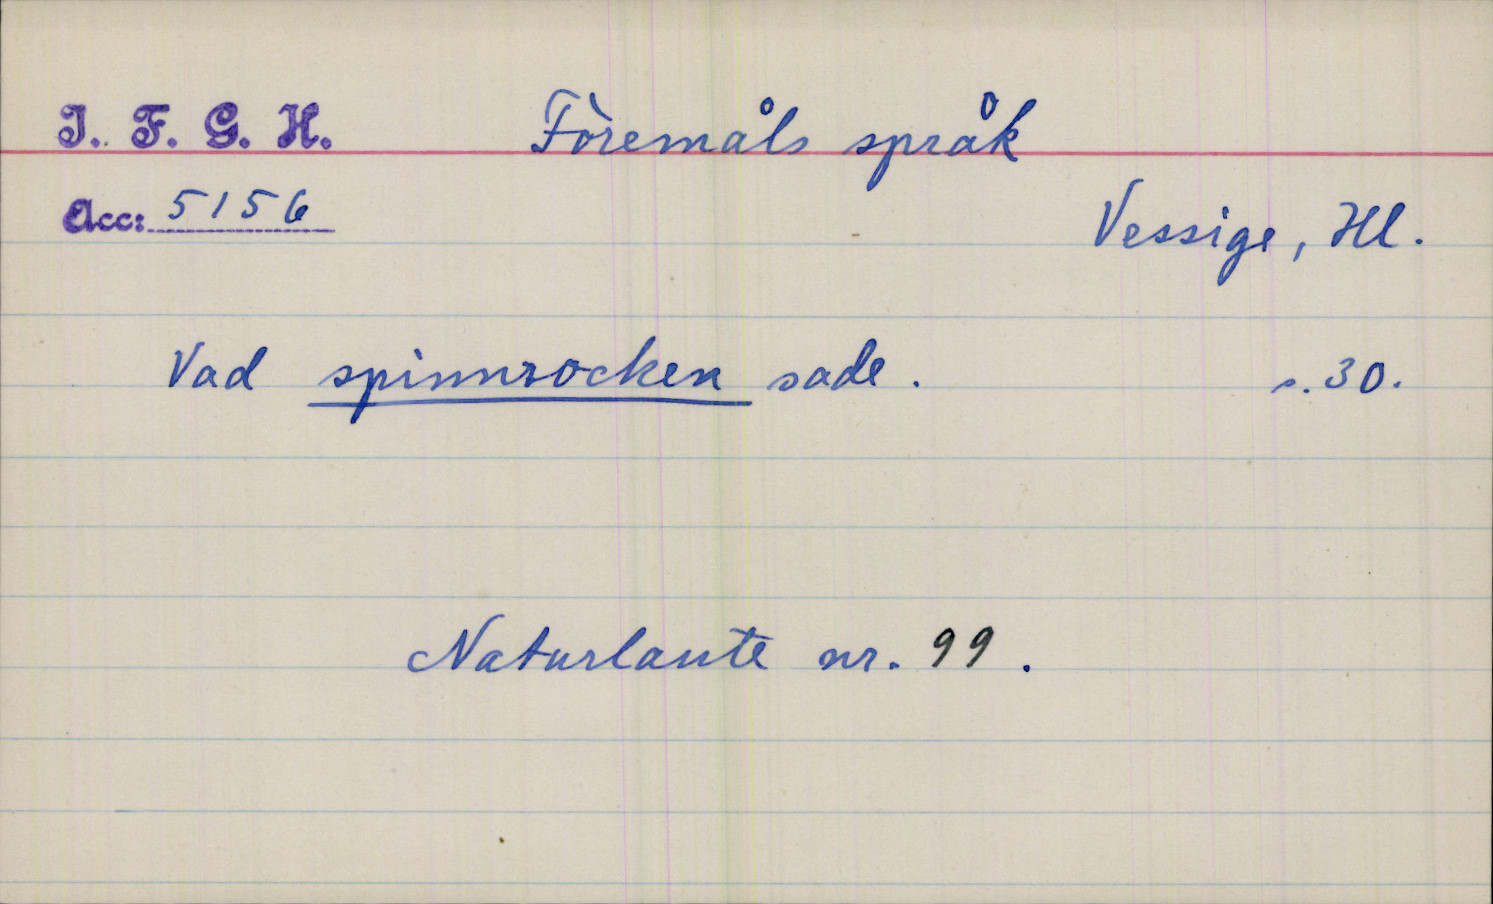 I. F. G. H.
Föremåls språk
Acc: 5156
Vessige, Hl.
Vad spinnrocken sade. s. 30.
Naturlaute nr. 99.